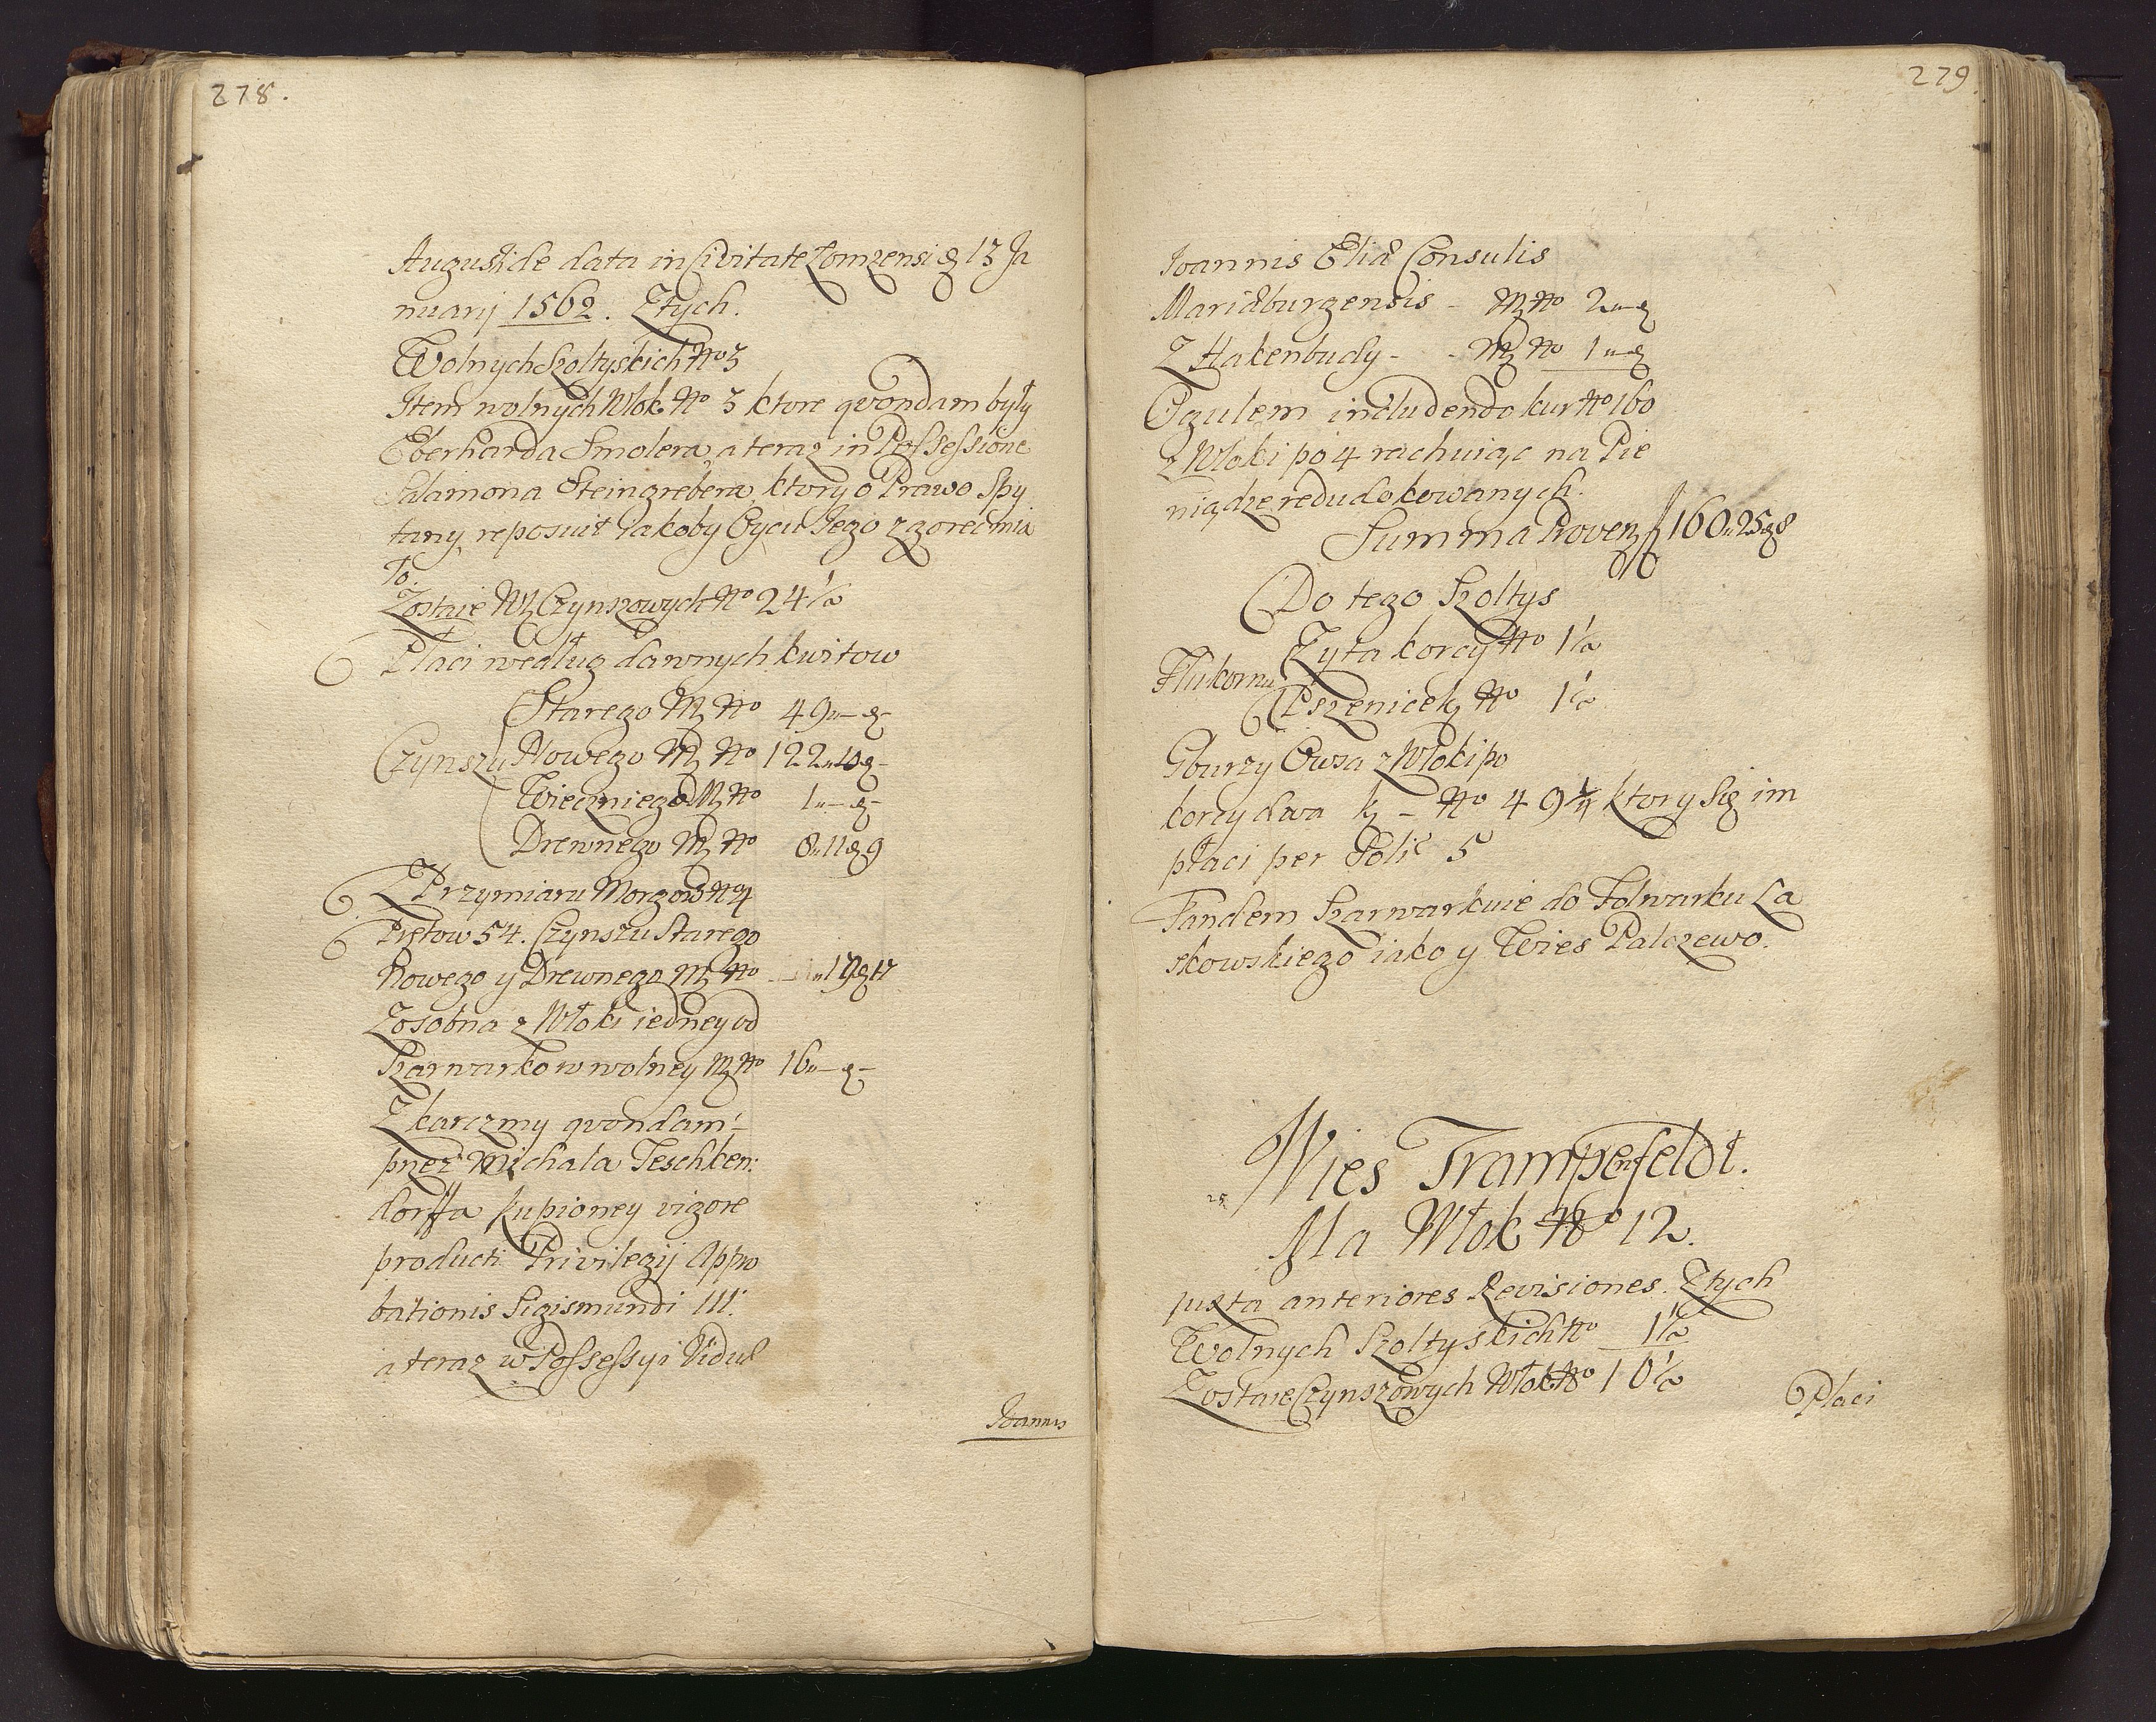 278.
Augusti de data in Civitate Łomzensi 13 Ja
nuarij 1562. Ztych.
Wolnych Szoltyskich No 3
Item wolnych Włok No 3 ktore qvondam były
Eberharda Smolera, a teraz in Possessione
Salamona Steingrebera, ktory o Prawo Spy
tany, reposuit iakoby Oycu Iego zgorec mia
ło.
Zostaie Wł Czynszowych No 24 1/2
Płaci według dawnych kwitow
Starego M No 49 „ – g –
Czynszu Nowego M No 122 „ 10 g –
Wiecznego M No 1 „ – g –
Drewnego M No 8 „ 11 g 9
Z Przymiaru Morgow No 4
Prętow 54. Czynszu Starego
Nowego y Drewnego M No „ 19 g 17
Zosobna z Włoki iedney od
Szarwarkow wolney M No 16 „ – g –
Z karczmy qvondam
przez Michala Teschken:
dorffa kupioney vigore
producti Privilegij Appro
bationis Sigismundi III.
a teraz w Possessyi Viduæ
Ioannis
279.
Ioannis Eliæ Consulis
Mariæburgensis - M No 2 „ – g
Z Hakenbudy - - M No 1 „ – g
Ogulem includendo kur No 160
z Włoki po 4 rachuiąc na Pie
niądze redudokowanych.
Summa Proven fl 160 „ 25 g 8
Do tego Szoltys
Zyta korcy No 1 1/2
Płukorna
Pszenice k No 1 1/2
Gburzy Owsa z Włoki po
korcy dwa k – No 49 1/4 ktory Się im
płaci per Polic 5
Tandem Szarwarkuie do Folwarku La
skowskiego iako y Wies Palczewo.
Wies Trampenfeldt.
Ma Włok No 12.
juxta anteriores Revisiones. Ztych
Wolnych Szoltyskich No 1 1/2
Zostaie Czynszowych Włok No 10 1/2
Płaci